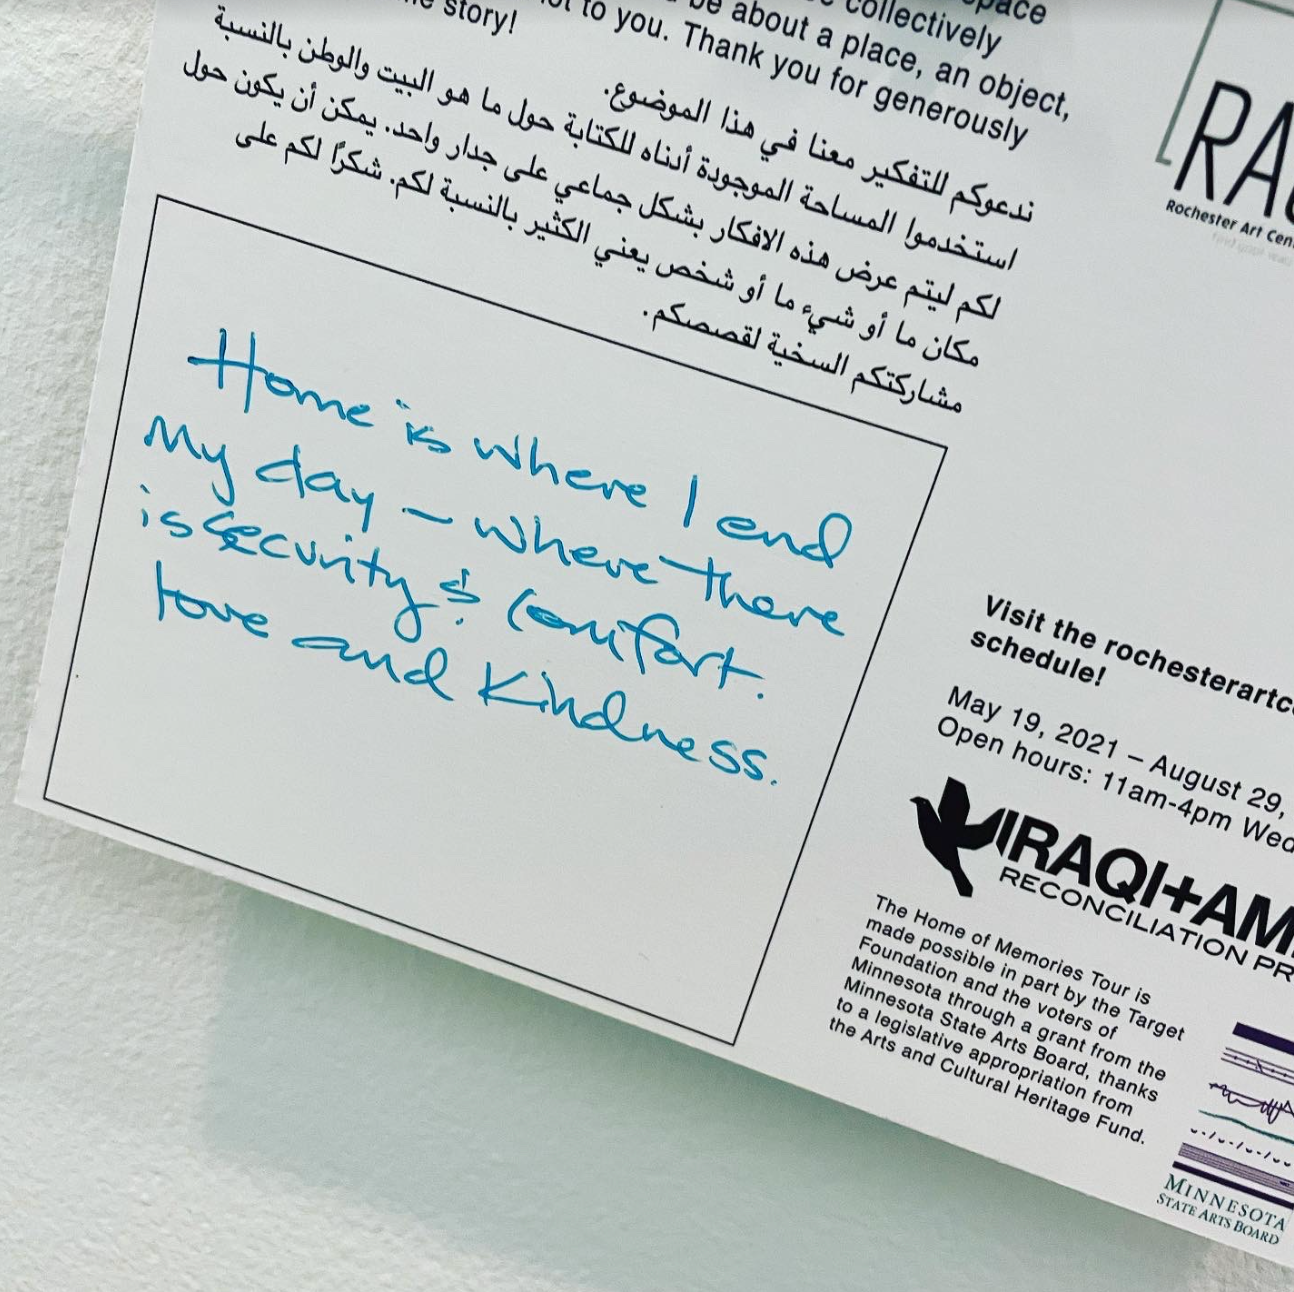 space
collectively
be about a place, an object,
to you. Thank you for generously
story!
ندعوكم للتفكير معنا في هذا الموضوع.
استخدموا المساحة الموجودة أدناه للكتابة حول ما هو البيت والوطن بالنسبة
لكم ليتم عرض هذه الافكار بشكل جماعي على جدار واحد. يمكن أن يكون حول
مكان ما أو شيء ما أو شخص يعني الكثير بالنسبة لكم. شكرًا لكم على
مشاركتكم السخية لقصصكم.
Home is where I end
My day – where there
is security & comfort.
love and kindness.
RA
Rochester Art Cen
Visit the rochesterartc
schedule!
May 19, 2021 – August 29,
Open hours: 11am-4pm Wed
IRAQI+AM
RECONCILIATION PR
The Home of Memories Tour is
made possible in part by the Target
Foundation and the voters of
Minnesota through a grant from the
Minnesota State Arts Board, thanks
to a legislative appropriation from
the Arts and Cultural Heritage Fund.
MINNESOTA
STATE ARTS BOARD